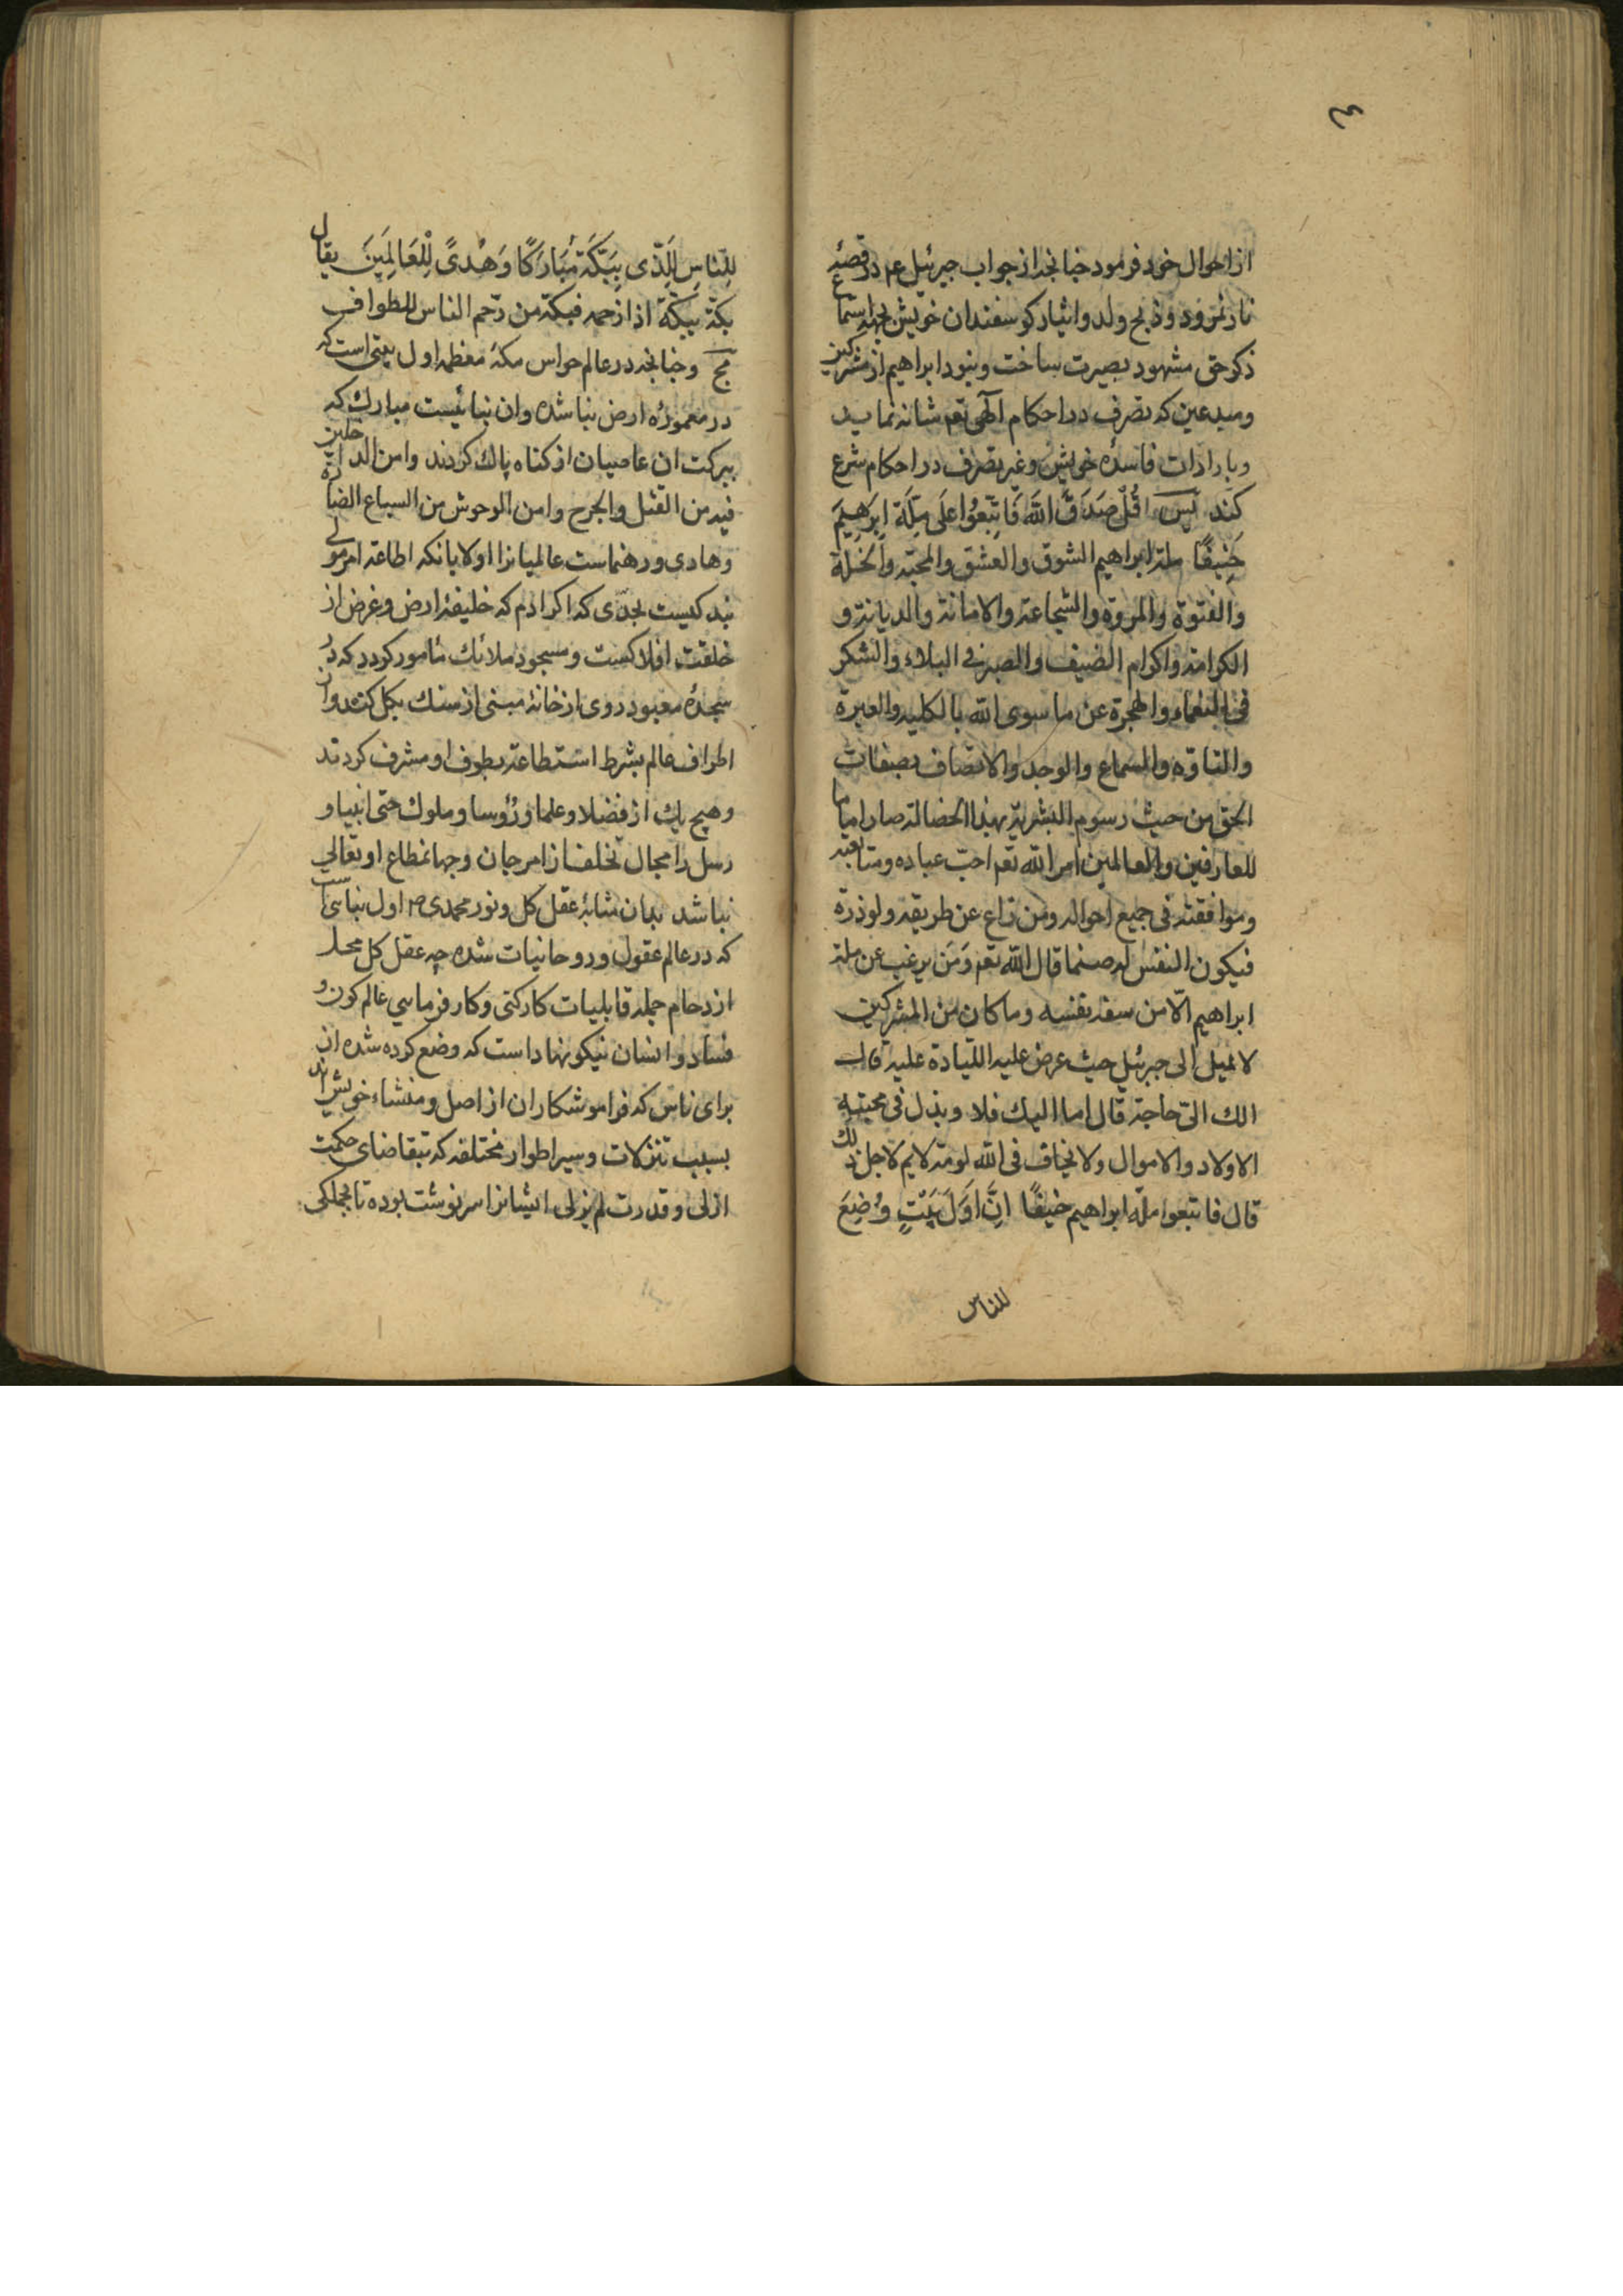 ٤
از احوال خود فرمود جنانجه از جواب جبرئیل عم در قصهٔ
نار نمرود و ذبح ولد و ایثار کوسفندان خویش بجهة استماع
ذکر حق مشهود بصیرت ساخت و نبود ابراهیم از مشرکین
و مبدعین که تصرف در احکام آلهی تعم شانه نماید
و بارادات فاسدهٔ خویش و غیر تصرف در احکام شرع
کند پس قُلْ صَدَقَ اللّٰهَ فَاتَّبِعُوا عَلَى مِلَّةَ اِبرَهِیمَ
حَنِیفًا ملة ابراهیم الشوق والعشق والمحبة والخلة
والفتوة والمروة والشجاعة والامانة والدیانة و
الکرامة واکرام الضیف والصبر فی البلاء والشکر
فی النعماء والهجرة عن ما سوی الله بالکلیه والعبرة
والتاوه والسماع والوجد والاتصاف بصفات
الحق من حیث رسوم البشریة بهذا الخضالة صار اماما
للعارفین والعالمین امر الله تعم احب عباده ومتابعة
وموافقته فی جمیع احواله ومن زاع عن طریقه ولو ذرة
فیکون النفس له صنما قال الله تعم وَمَن یرغب عن ملة
ابراهیم الّا من سفه نفسه وما کان من المشرکین
لا تمیل الی جبرئیل حیث عرض علیه علیه قال
الك الیّ حاجة قال اما الیك فلا وبذل فی محبته
الاولاد والاموال ولا یخاف فی الله لومة لایم لاجل ذلك
قال فاتبعوا ملّه ابراهیم حنیفًا اِنَّ اَوَّلَ بَیْتٍ وُضِعَ
للناس
لِلنّاسِ لَلَّذّی بِبَکَّةَ مُبَارَکًا وَهُدیً لِلْعَالَمِینَ یقال
بکة ببکة اذا ازحمه فبکة من زحم الناس للطواف
حج وجنانجه در عالم حواس مکهٔ معظمه اول بیتی است که
در معمورهٔ ارض بنا شده وان بنائیست مبارك که
ببرکت ان عاصیان از کناه پاك کردند وامن الداخلین
فیه من القتل والجرح وامن الوحوش من السباع الضارة
وهادی ورهنماست عالمیانرا اولا بانکه اطاعة امر مولی
بند کیست بحدّی که اکر ادم که خلیفهٔ ارض وغرض از
خلقت افلاکست ومسجود ملائك مامور کردد که در
سجدهٔ معبود روی از خانهٔ مبنی از سنك بکل کنند واز
اطراف عالم بشرط استطاعة بطوف او مشرف کردند
وهیچ یك از فضلا وعلما ورؤسا وملوك حتی انبیا و
رسل را مجال تخلف از امر جان وجهانمطاع او تعالی
نباشد بدان مثابه عقل کل ونور محمدی ص اول بنایی است
که در عالم عقول وروحانیات شده چه عقل کل محل
ازدحام جمله قابلیات کارکنی وکار فرمایی عالم کون و
فساد وانسان نیکو نهاد است که وضع کرده شده اند
برای ناس که فراموشکاران از اصل ومنشاء خویش اند
بسبب تنزلات وسیر اطوار مختلفه که بتقاضای حکمت
ازلی وقدرت لم یزلی ایشانرا سرنوشت بوده تا بجملکی